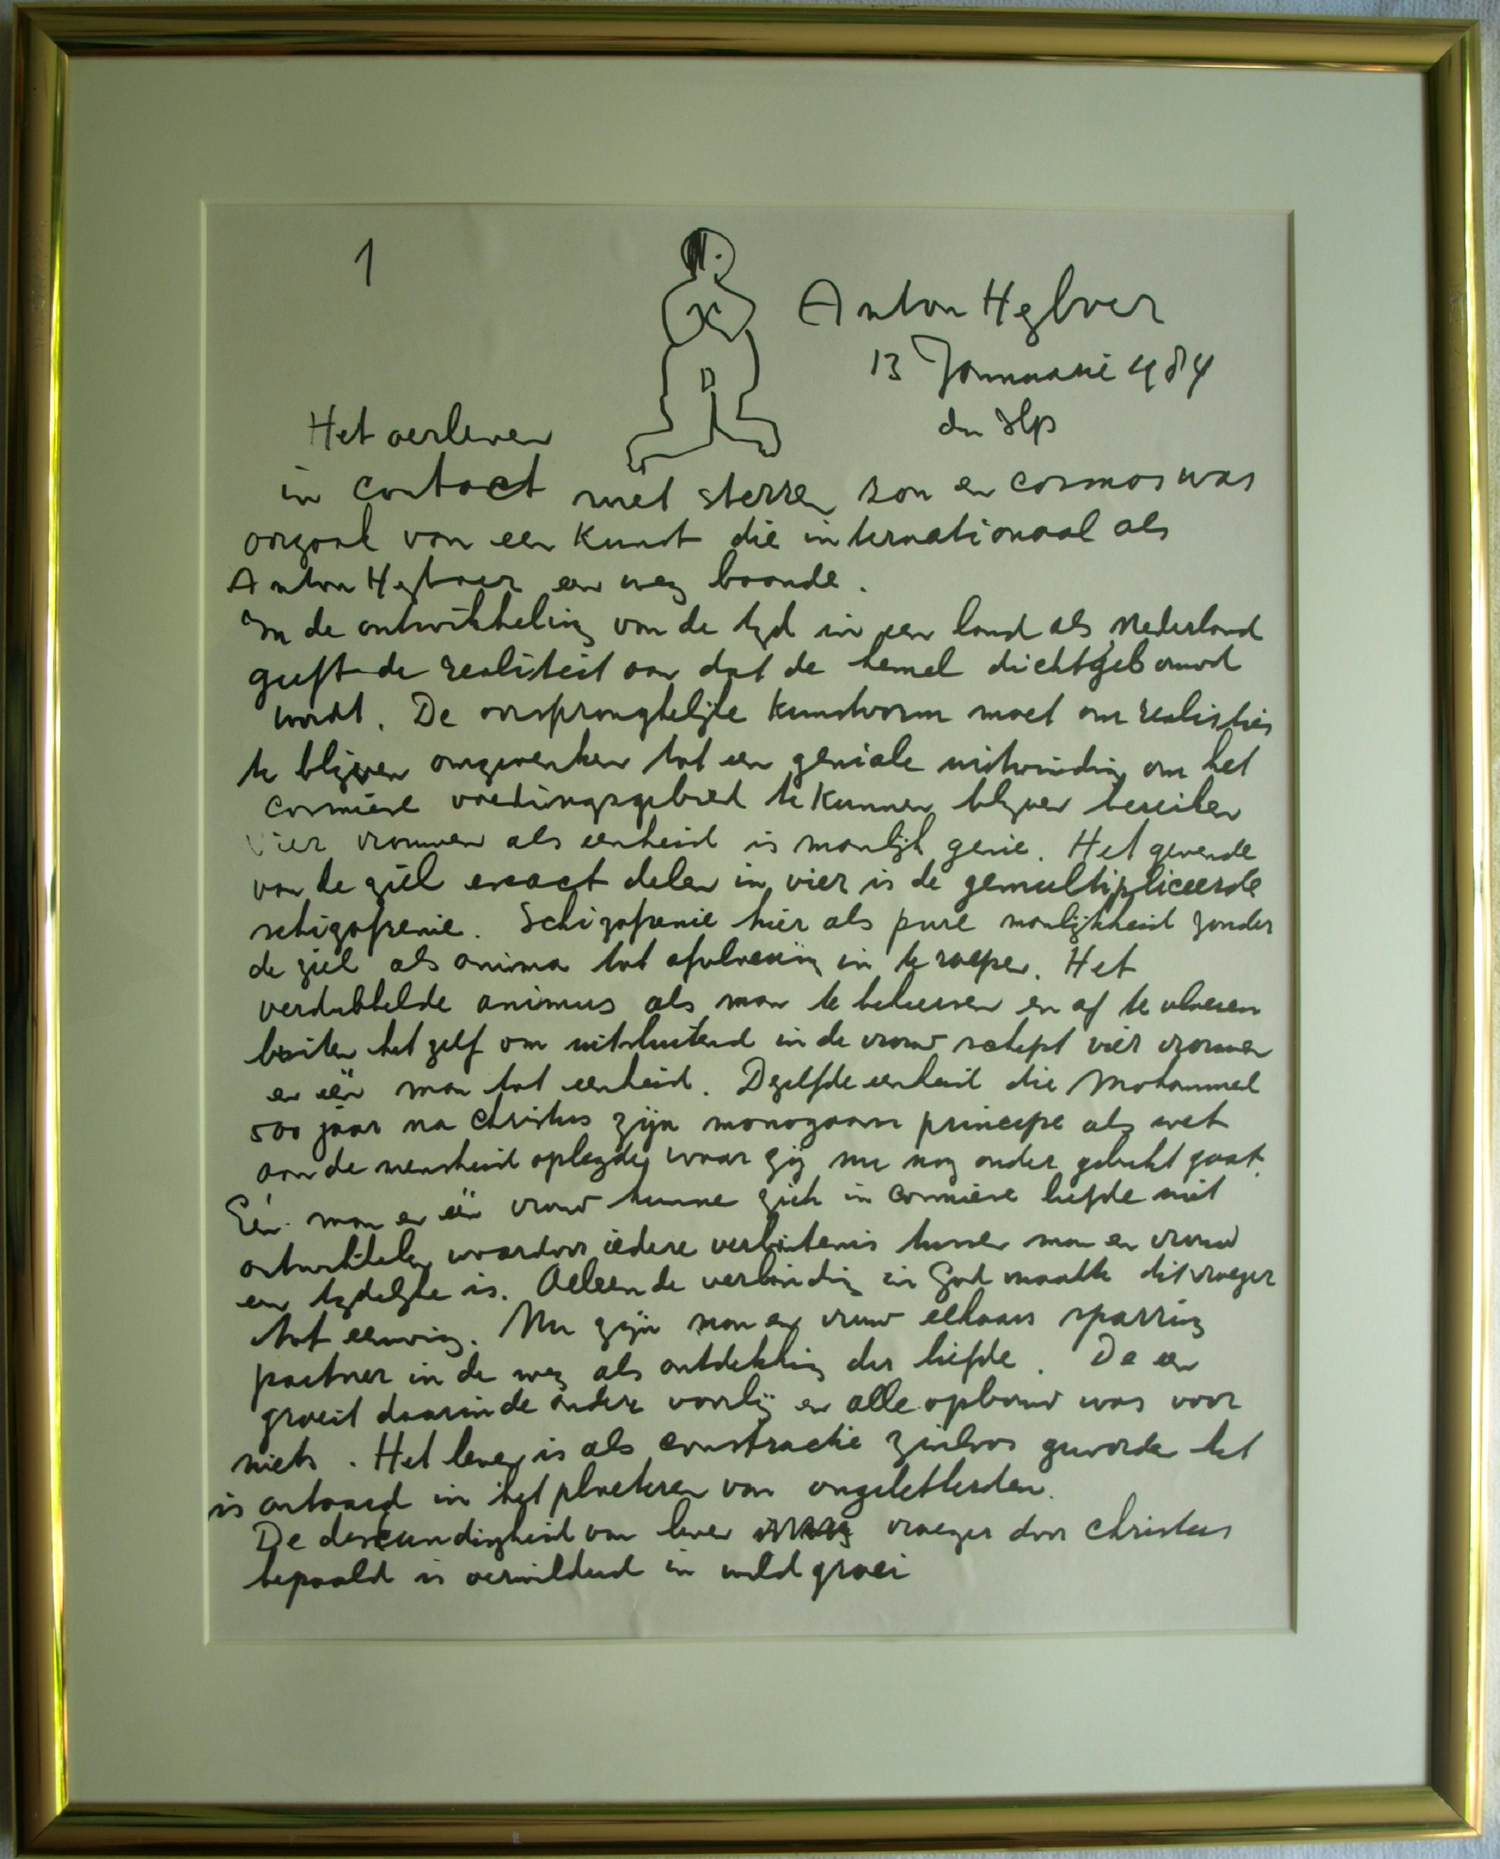 1
Anton Heyboer
13 Januari 1984
den Ilp
Het oerleven
in contact met sterren zon en cosmos was
oorzaak van een kunst die internationaal als
Anton Heyboer een weg baande.
In de ontwikkeling van de tyd in een land als Nederland
geeft de realiteit aan dat de hemel dichtgebouwd
wordt. De oorspronghelijke kunstvorm moet om realisties
te blijven omgewerken tot een geniale uitvinding om het
cosmiese voedingsgebied te kunnen blyven bereiken
Vier vrouwen als eenheid is manlijk genie. Het gevende
van de ziel exact delen in vier is de gemultipliceerde
schizofrenie. Schizofrenie hier als pure manlijkheid zonder
de ziel als anima tot afvloeiing in te roepen. Het
verdubbelde animus als man te beheersen en af te vloeien
buiten het zelf om uitsluitend in de vrouw schept vier vrouwen
en één man tot eenheid. Dezelfde eenheid die Mohammed
500 jaar na Christus zijn monogaam principe als wet
aan de mensheid oplegde, waar zij nu nog onder gebukt gaat.
Eén man en één vrouw kunnen zich in cosmiese liefde niet
ontwikkelen waardoor iedere verbintenis tussen man en vrouw
een tydelijke is. Alleen de verbinding in God maakte dit vroeger
tot eeuwig. Nu zijn man en vrouw elkaars sparring
partner in de weg als ontdekking der liefde. De een
groeit daarin de andere voorbij en alle opbouw was voor
niets. Het leven is als constructie zinloos geworden het
is ontaard in het plaatsen van ongeletterden.
De deskundigheid van leven vroeger door Christus
bepaald is verwilderd in wild groei